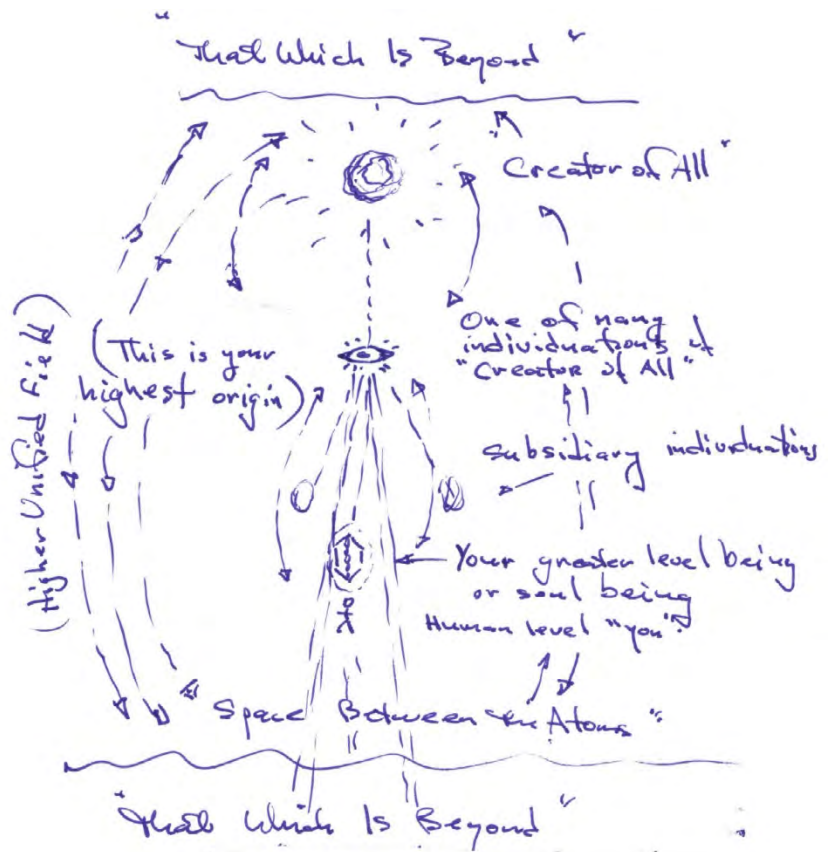 "That Which Is Beyond"
"Creator of All"
(Higher Unified Field)
(This is your
highest origin)
One of many
individuations of
"Creator of All"
Subsidiary individuations
Your greater level being
or soul being
Human level "you"
"Space Between the Atoms"
"That Which Is Beyond"